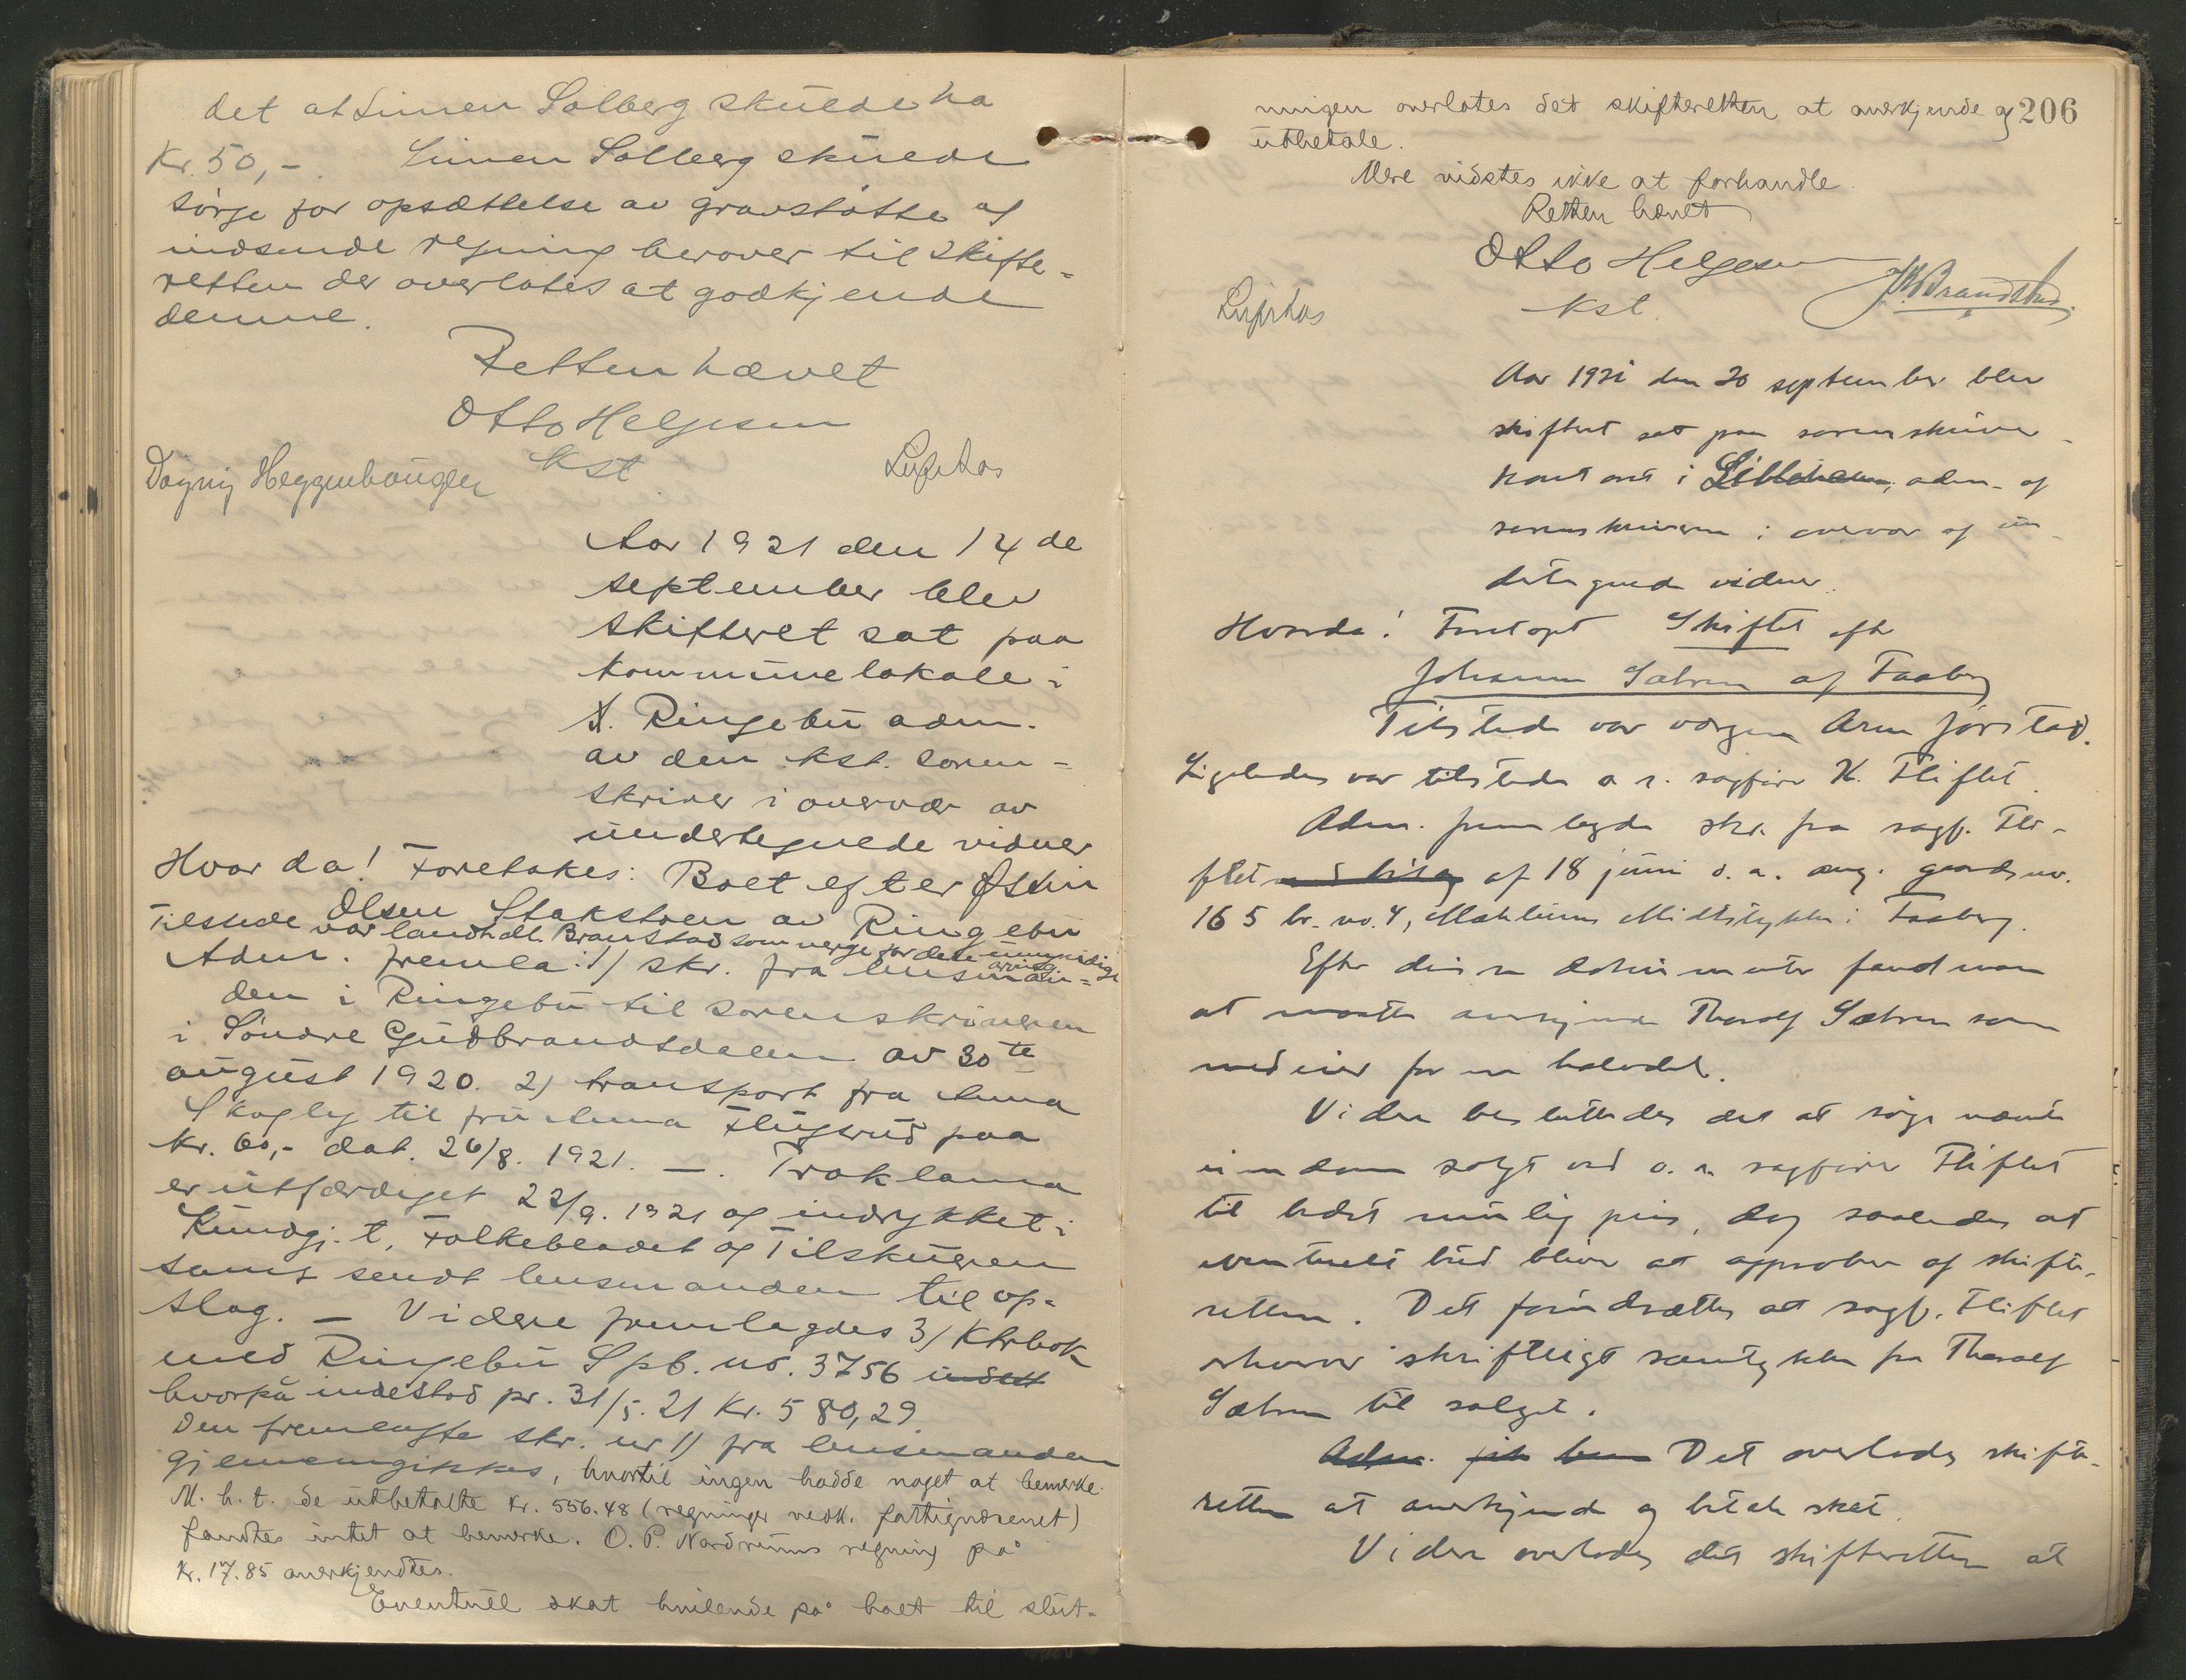 det at Simen Solberg skulde ha
Kr. 50,-. Simen Solberg skulde
sørge for opsættelse av gravstøtte og
indsende regning herover til skifte-
retten der overlotes at godkjende
denne.
Retten hævet
Otto Helgesen
kst.
Dagny Heggenhougen
Aar 1921 den 14de
september blev
skifteret sat paa
kommunelokale i
S. Ringebu adm.
av den kst. soren-
skriver i overvær av
undertegnede vidner
Hvor da! Foretokes: Boet efter Østen
Olsen Stakstoen av Ringebu
Tilstede var landhdl. Branstad som verge for den umyndige
arving
Adm. fremla: 1) skr. fra lensman-
den i Ringebu til sorenskriveren
i Søndre Gudbrandsdalen av 30te
august 1920. 2) transport fra Anna
Skogly til fru Anna Flugsrud paa
kr. 60,- dat. 26/8. 1921. —. Proklama
er utfærdiget 22/9. 1921 og indrykket i
Kundgj. t, Folkebladet og Tilskueren
samt sendt lensmanden til op-
slag. — Videre fremlagdes 3) Ktrbok
med Ringebu Spb. no. 3756 indest
hvorpå indestod pr. 31/5. 21 Kr. 580,29
Den fremlagte skr. nr 1) fra lensmanden
gjennemgikkes, hvortil ingen hadde noget at bemerke.
M. h. t. de utbetalte kr. 556.48 (regninger vedk. fattigvæsenet)
fandtes intet at bemerke. O. P. Nordrums regning på
kr. 17.85 anerkjendtes.
Eventuell skat hvilende på boet til slut-
206
ningen overlotes det skifteretten at anerkjende og
utbetale.
Mere vidstes ikke at forhandle.
Retten hævet
Otto Helgesen
kst.
Brandstad.
Aar 1921 den 20 september blev
skifteret sat paa sorenskriver-
kontoret i Lillehammer, adm. af
sorenskriveren i overvær af un-
dertegnede vidner.
Hvorda! Foretoges Skiftet efter
Johanne Sætren af Faaberg
Tilstede var vergen Arne Jørstad.
Ligeledes var tilstede o. r. sagfører K. Fliflet.
Adm. fremlagde skr. fra sagf. Fli-
flet med bilag af 18 juni d. a. ang. gaardsno.
165 br. no. 4, Mæhlums Midtstykke i Faaberg.
Efter disse dokumenter fandt man
at maatte anerkjende Tharald Sætren som
medeier for en halvdel.
Videre besluttedes det at søge nævnte
eiendom solgt ved o. r. sagfører Fliflet
til bedst mulig pris, dog saaledes at
eventuelt bud bliver at approbere af skifte-
retten. Det forudsættes at sagf. Fliflet
erhverver skriftligt samtykke fra Tharald
Sætren til salget.
Adm. Det overlodes skifte-
retten at anerkjende og betale skat.
Videre overlodes det skifteretten at